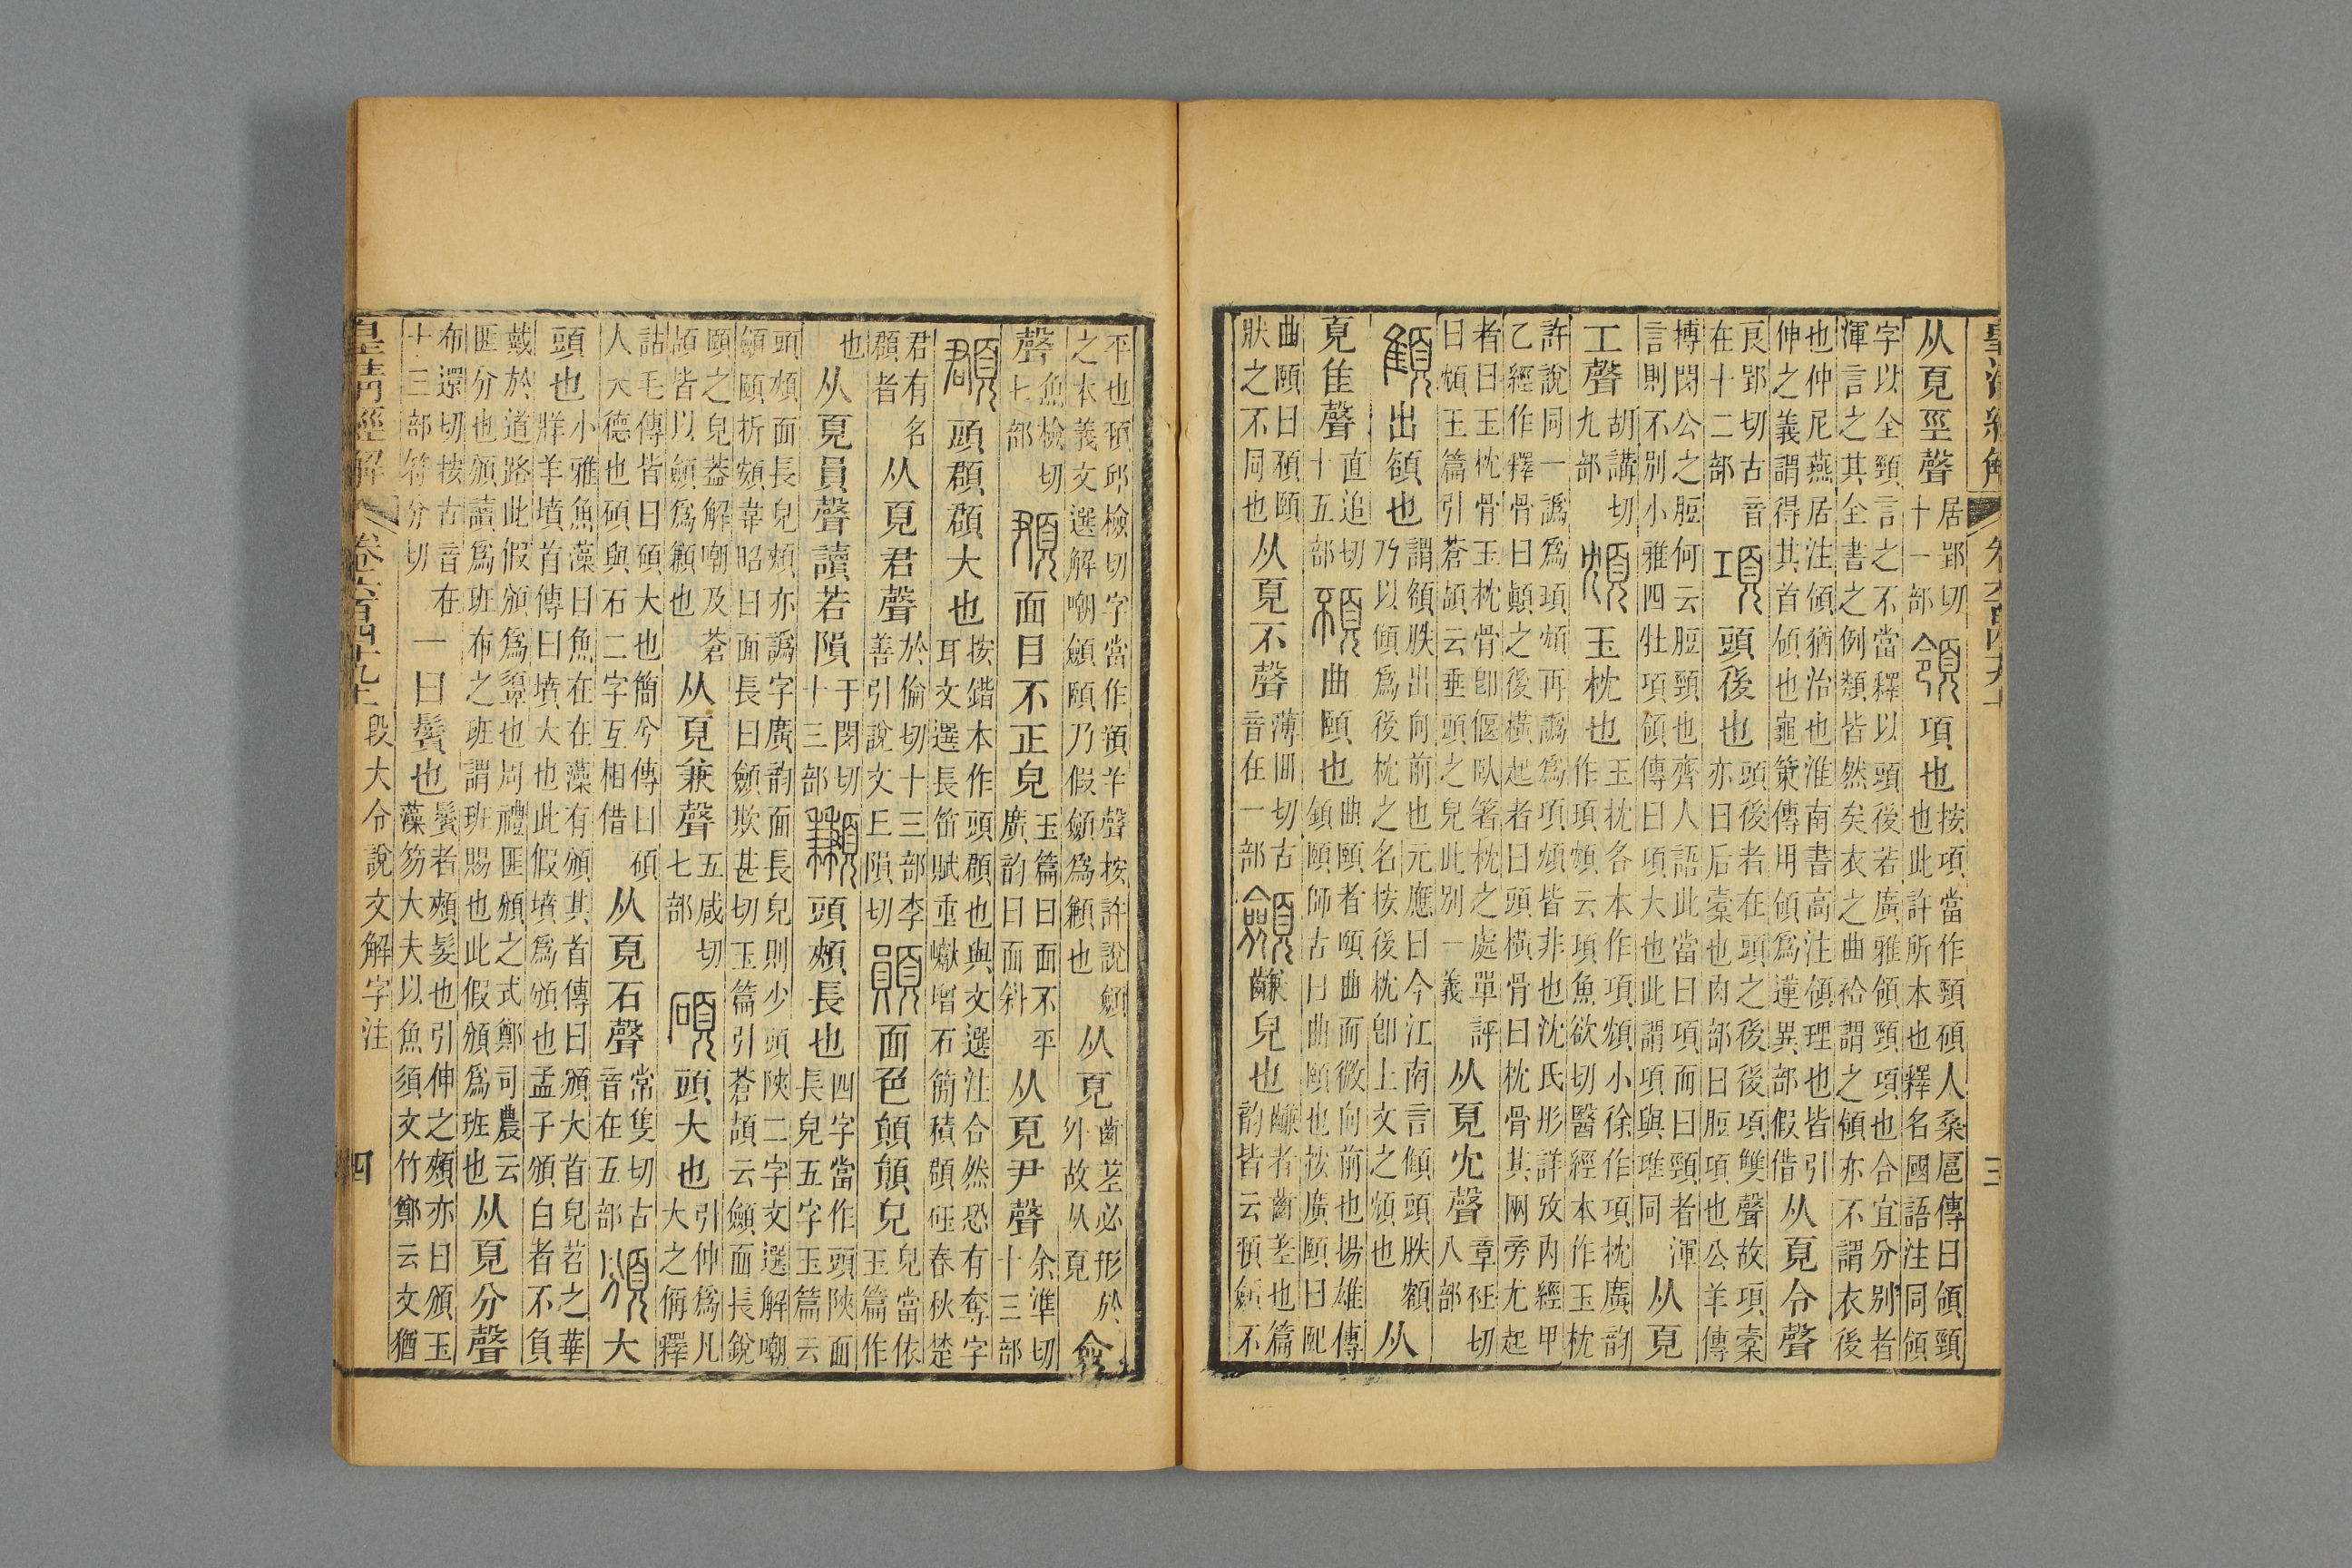 从頁巠聲居郢切十一部領項也按項當作頸碩人桑扈傳曰領頸也此許所本也釋名國語注同領
字以全頸言之不當釋以頭後若廣雅領頸項也合宜分別者渾言之其全書之例類皆然矣衣之曲袷謂之領亦不謂衣後
也仲尼燕居注領猶治也淮南書高注領理也皆引伸之義謂得其首領也龜筴傳用領爲蓮異部假借从頁令聲
良郢切古音在十二部項頭後也頭後者在頭之後後項雙聲故項橐亦曰后橐也肉部曰脰項也公羊傳
搏閔公之脰何云脰頸也齊人語此當曰項而曰頸者渾言則不別小雅四牡項領傳曰項大也此謂項與琟同从頁
工聲胡講切九部䪴玉枕也玉枕各本作項䪴小徐作項枕廣韵作項䪴云項魚欲切醫經本作玉枕
許說同一譌爲頊䪴再譌爲項䪴皆非也沈氏彤詳攷內經甲乙經作釋骨曰顚之後橫起者曰頭橫骨曰枕骨其兩旁尤起
者曰玉枕骨玉枕骨卽偃臥箸枕之處單評曰䪴玉篇引蒼頡云垂頭之皃此別一義从頁冘聲章衽切八部
顀出頟也謂頟胅出向前也元應曰今江南言顀頭胅額乃以顀爲後枕之名按後枕卽上文之䪴也从
頁隹聲直追切十五部䫠曲頤也曲頤者頤曲而微向前也揚雄傳鎮頤師古曰曲頤也按廣頤曰䪹
曲頤曰䫠頤狀之不同也从頁不聲薄回切古音在一部顩皃也者齒差也篇韵皆云䫡顩不
平也䫡邱檢切字當作頷羊聲按許說顩之本義文選解嘲顩頤乃假顩爲顉也从頁齒差必形於外故从頁僉
聲魚檢切七部頵面目不正皃玉篇曰面不平廣韵曰面斜从頁尹聲余準切十三部
頵頭頵頵大也按鍇本作頭頵也與文選注合然恐有奪字耳文選長笛賦重巘增石簡積頵砡春秋楚
君有名頵者从頁君聲於倫切十三部李善引說文上隕切䫟面色䫟䫟皃皃當依玉篇作
也从頁員聲讀若隕于閔切十三部顩頭頰長也四字當作頭陜面長皃五字玉篇云
頭頰面長皃頰亦譌字廣韵面長皃則少頭陜二字文選解嘲顩頤折頞韋昭曰面長曰顩欺甚切玉篇引蒼頡云顩面長銳
頤之皃葢解嘲及蒼頡皆以顩爲也从頁兼聲五咸切七部碩頭大也引伸爲凡大之偁釋
詁毛傳皆曰碩大也簡兮傳曰碩人大德也碩與石二字互相借从頁石聲常隻切古音在五部頒大
頭也小雅魚藻曰魚在在藻有頒其首傳曰頒大首皃苕之華牂羊墳首傳曰墳大也此假墳爲頒也孟子頒白者不負
戴於道路此假頒爲辬也周禮匪頒之式鄭司農云匪分也頒讀爲班布之班謂班賜也此假頒爲班也从頁分聲
布還切按古音在十三部符分切一曰鬢也鬢者頰髮也引伸之頰亦曰頒玉藻笏大夫以魚須文竹鄭云文猶
皇淸經解卷六百四十九上段大令說文解字注四